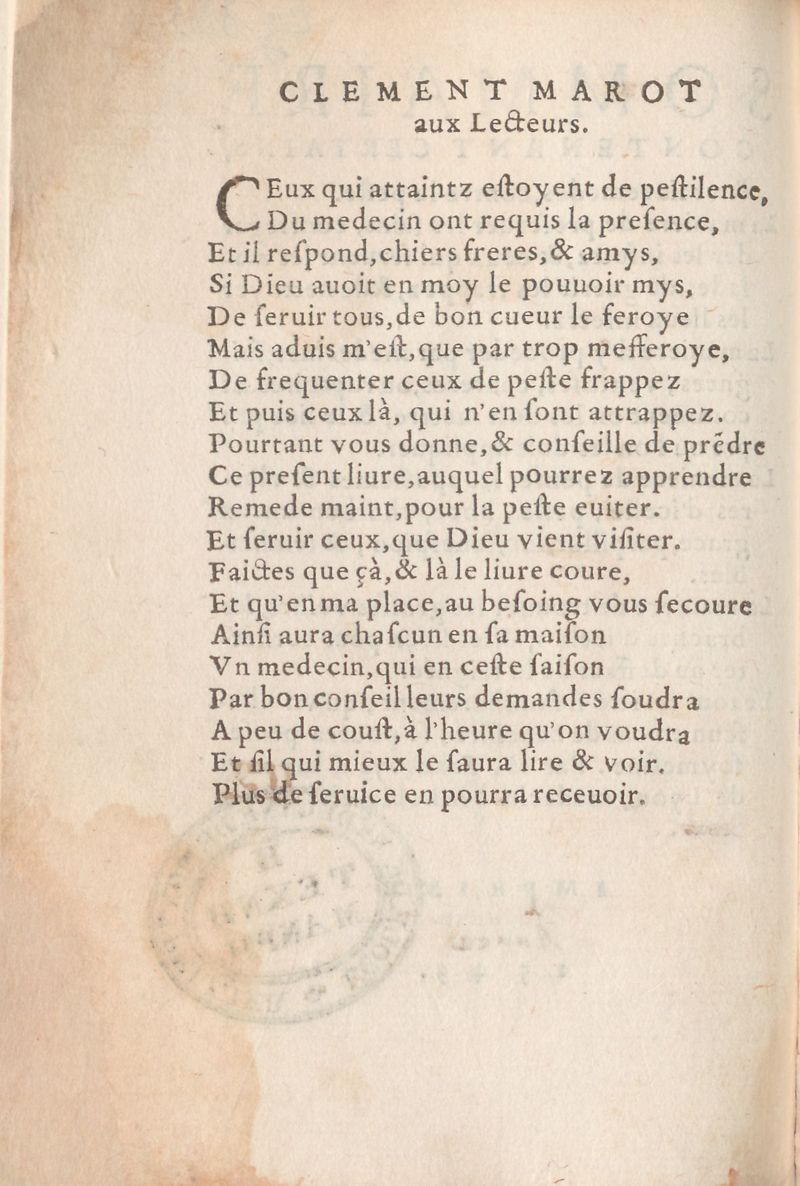 CLEMENT MAROT
aux Lecteurs.
CEux qui attaintz eſtoyent de peſtilence,
Du medecin ont requis la preſence,
Et il reſpond,chiers freres,& amys,
Si Dieu auoit en moy le pouuoir mys,
De ſeruir tous,de bon cueur le feroye
Mais aduis m'eſt,que par trop mefferoye,
De frequenter ceux de peſte frappez
Et puis ceux là, qui n'en ſont attrappez.
Pourtant vous donne,& conſeille de prēdre
Ce preſent liure,auquel pourrez apprendre
Remede maint,pour la peſte euiter.
Et ſeruir ceux,que Dieu vient viſiter.
Faictes que çà,& là le liure coure,
Et qu'en ma place,au beſoing vous ſecoure
Ainſi aura chaſcun en ſa maiſon
Vn medecin,qui en ceſte ſaiſon
Par bon conſeil leurs demandes ſoudra
A peu de couſt,à l'heure qu'on voudra
Et ſil qui mieux le ſaura lire & voir.
Plus de ſeruice en pourra receuoir.